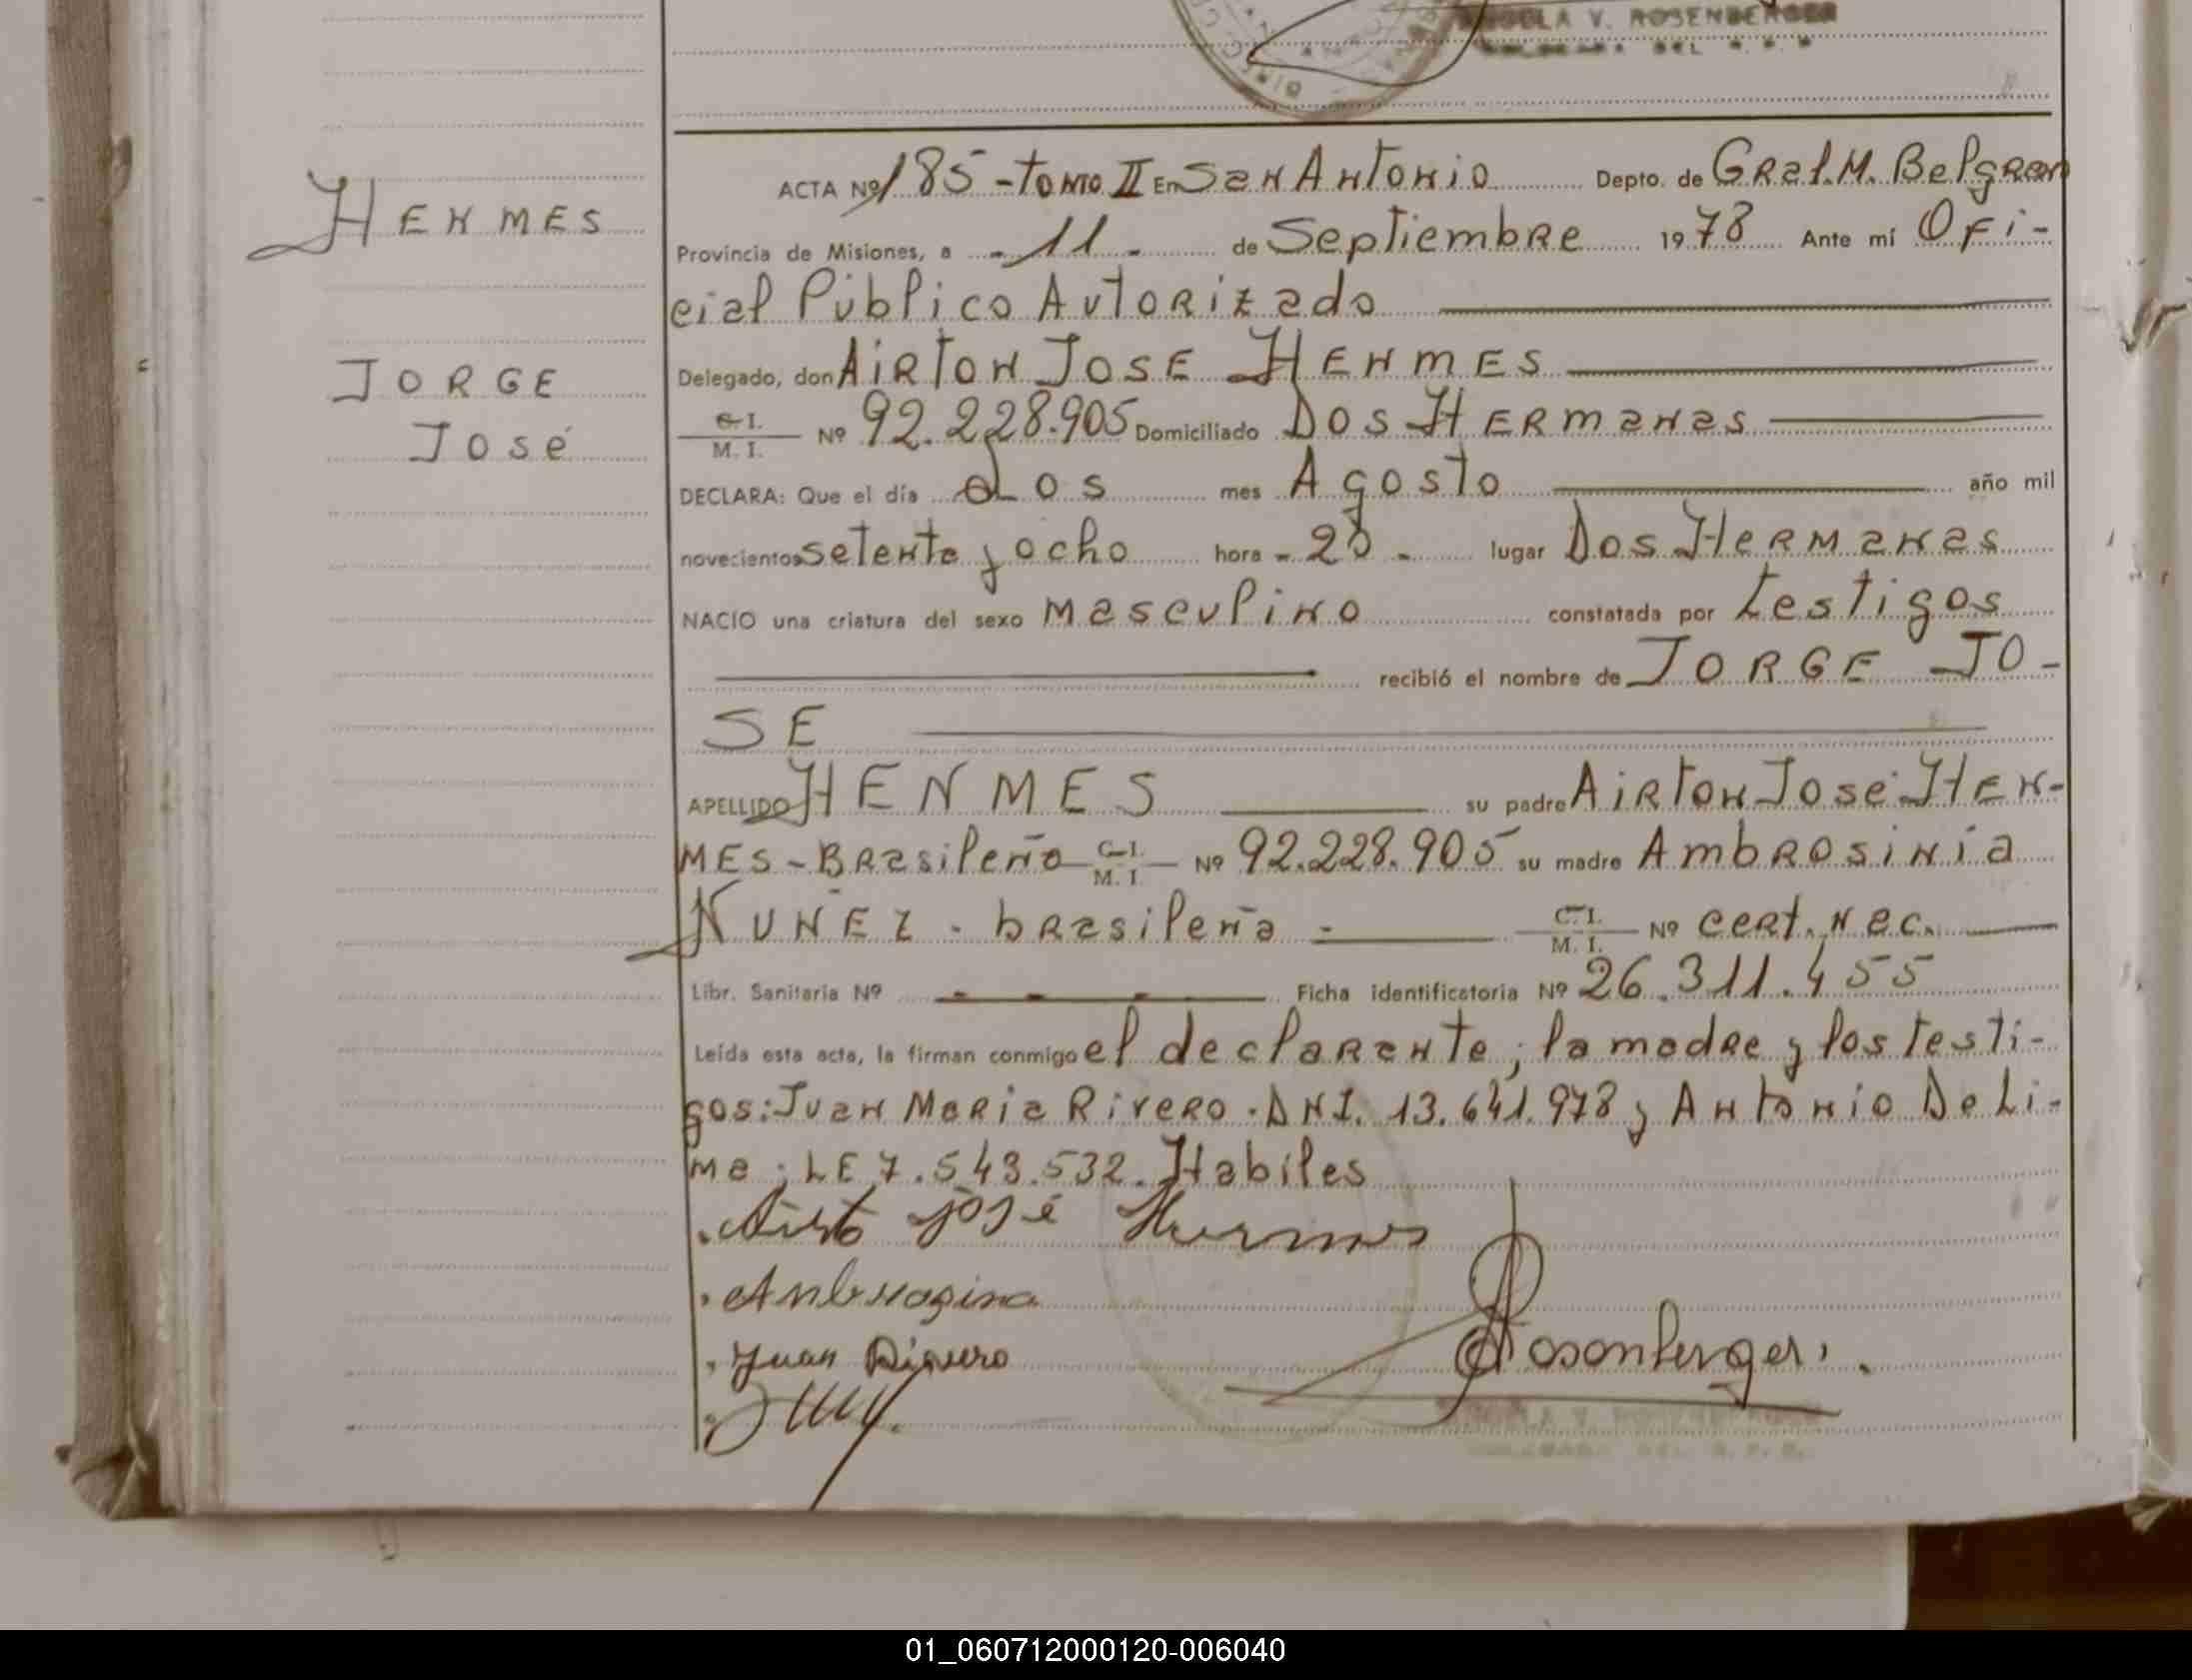 V. ROSENBERGER
ACTA Nº 185 - tomo II En San Antonio Depto. de Gral. M. Belgrano
HENMES
Provincia de Misiones, a - 11 - de Septiembre 1978 Ante mí Ofi-
cial Público Autorizado
JORGE
Delegado, don AiRTON JOSE HENMES
JOSé
C.I. M. I. Nº 92.228.905 Domiciliado Dos HERmanas
DECLARA: Que el día dos mes Agosto año mil
novecientos setenta y ocho hora - 20 - lugar Dos Hermanas
NACIO una criatura del sexo masculino constatada por testigos
recibió el nombre de JORGE JO-
SE
APELLIDO HENMES su padre AiRTON José HEN-
MES - Brasileño C.I. M. I. Nº 92.228.905 su madre Ambrosinia
NUÑEZ - brasileña - C.I. M. I. Nº cert. nac.
Libr. Sanitaria Nº - - - Ficha identificatoria Nº 26.311.455
Leída esta acta, la firman conmigo el declarante, la madre y los testi-
gos: Juan Maria Rivero. DNI. 13.641.978 y Antonio De Li-
ma; LE 7.543.532. Habiles
José Hermes
Juan
Rosenberger